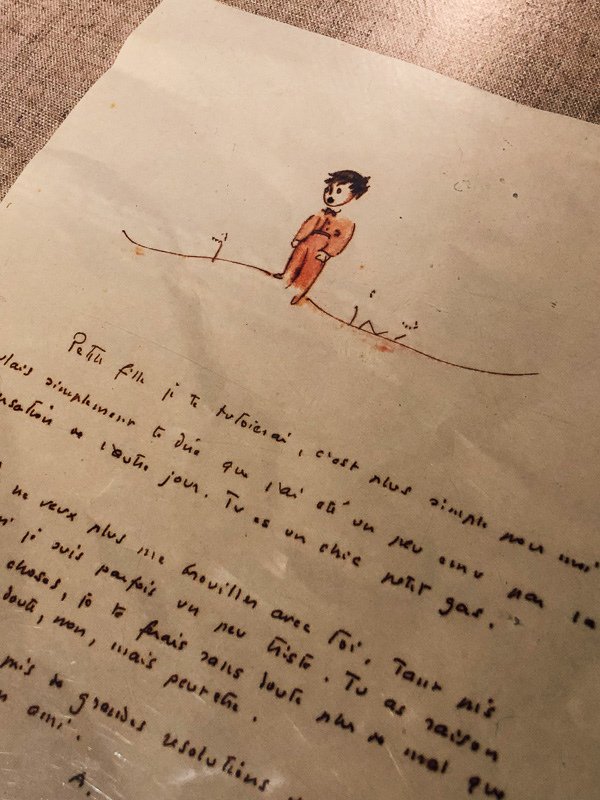 Petite fille je te tutoierai, c'est plus simple pour moi
simplement te dire que j'ai été un peu ému par la
de l'autre jour. Tu es un chic petit gas.
ne veux plus me brouiller avec toi. Tant pis
je suis parfois un peu triste. Tu as raison
choses, je te ferais sans doute plus de mal que
doute, non, mais peut être.
pris de grandes résolutions
ami.
A.